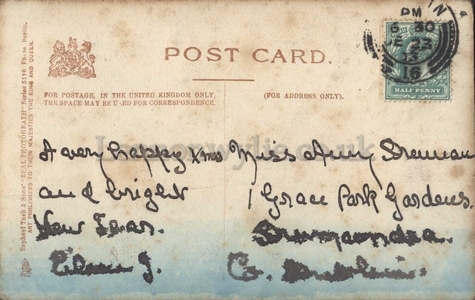 POST CARD.
FOR POSTAGE, IN THE UNITED KINGDOM ONLY,
THE SPACE MAY BE USED FOR CORRESPONDENCE.
(FOR ADDRESS ONLY.)
HALF PENNY
PM
6 30
DE 23
16
Raphael Tuck & Sons' "REAL PHOTOGRAPH" Series 5116 Photo Berlin.
ART PUBLISHERS TO THEIR MAJESTIES THE KING AND QUEEN.
A very happy Xmas
and bright
New Year.
Miss Amy Drennan
1 Grace Park Gardens.
Drumcondra.
Co. Dublin.